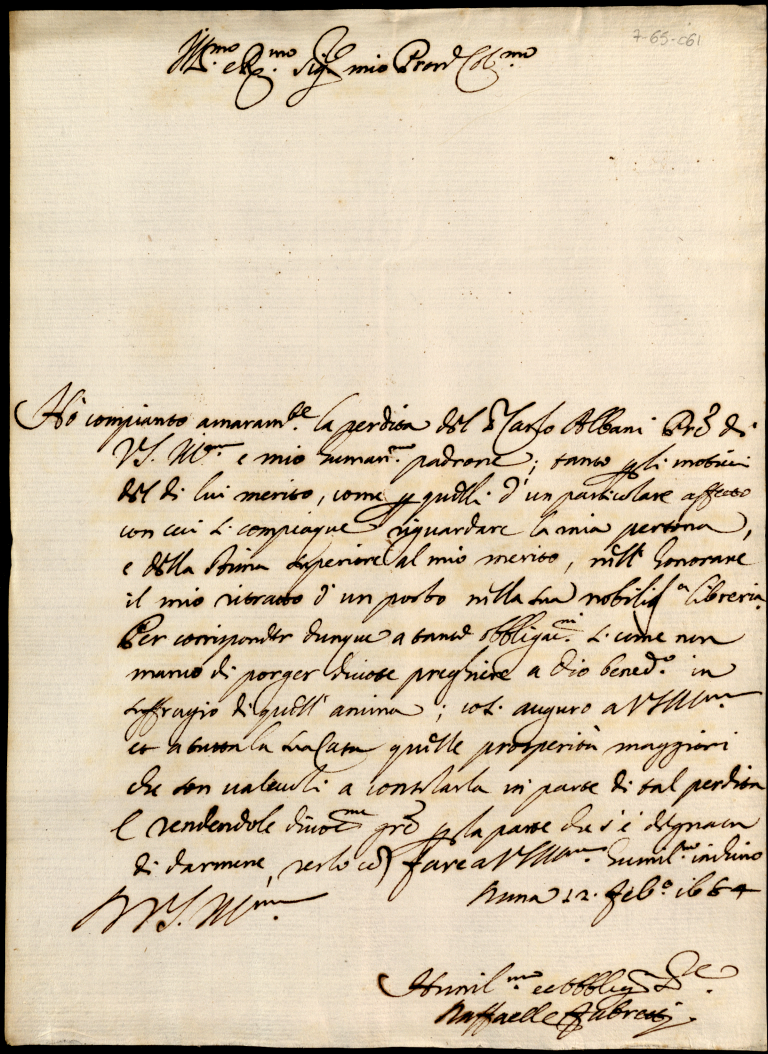 7-65-061
Ill.mo e R.mo Sig.re mio Pron Col.mo
Hò compianto amaram.te la perdita del S.r Carlo Albani Pre di
V.S. Ill.ma e mio human.mo padrone; tanto p gli motivi
del di lui merito, come p quelli d'un particolare affetto
con cui si compiaque riguardare la mia persona,
e della stima superiore al mio merito, nell'honorare
il mio ritratto d'un posto nella sua nobiliss.a libreria.
Per corrisponder dunque a tante obbligac.ni si come non
manco di porger divote preghiere a Dio bened.o in
suffragio di quell'anima; così auguro a VSIll.ma
et a tutta la sua Casa quelle prosperità maggiori
che son valevoli a consolarla in parte di tal perdita
E rendendole divot.me gre p la parte che s'è degnata
di darmene, resto co fare a VSIll.ma humil.mo inchino
V.S. Ill.ma
Roma 12. Feb.o 1684
Humil.mo et Obblig.mo Se.re
Raffaelle Fabretti